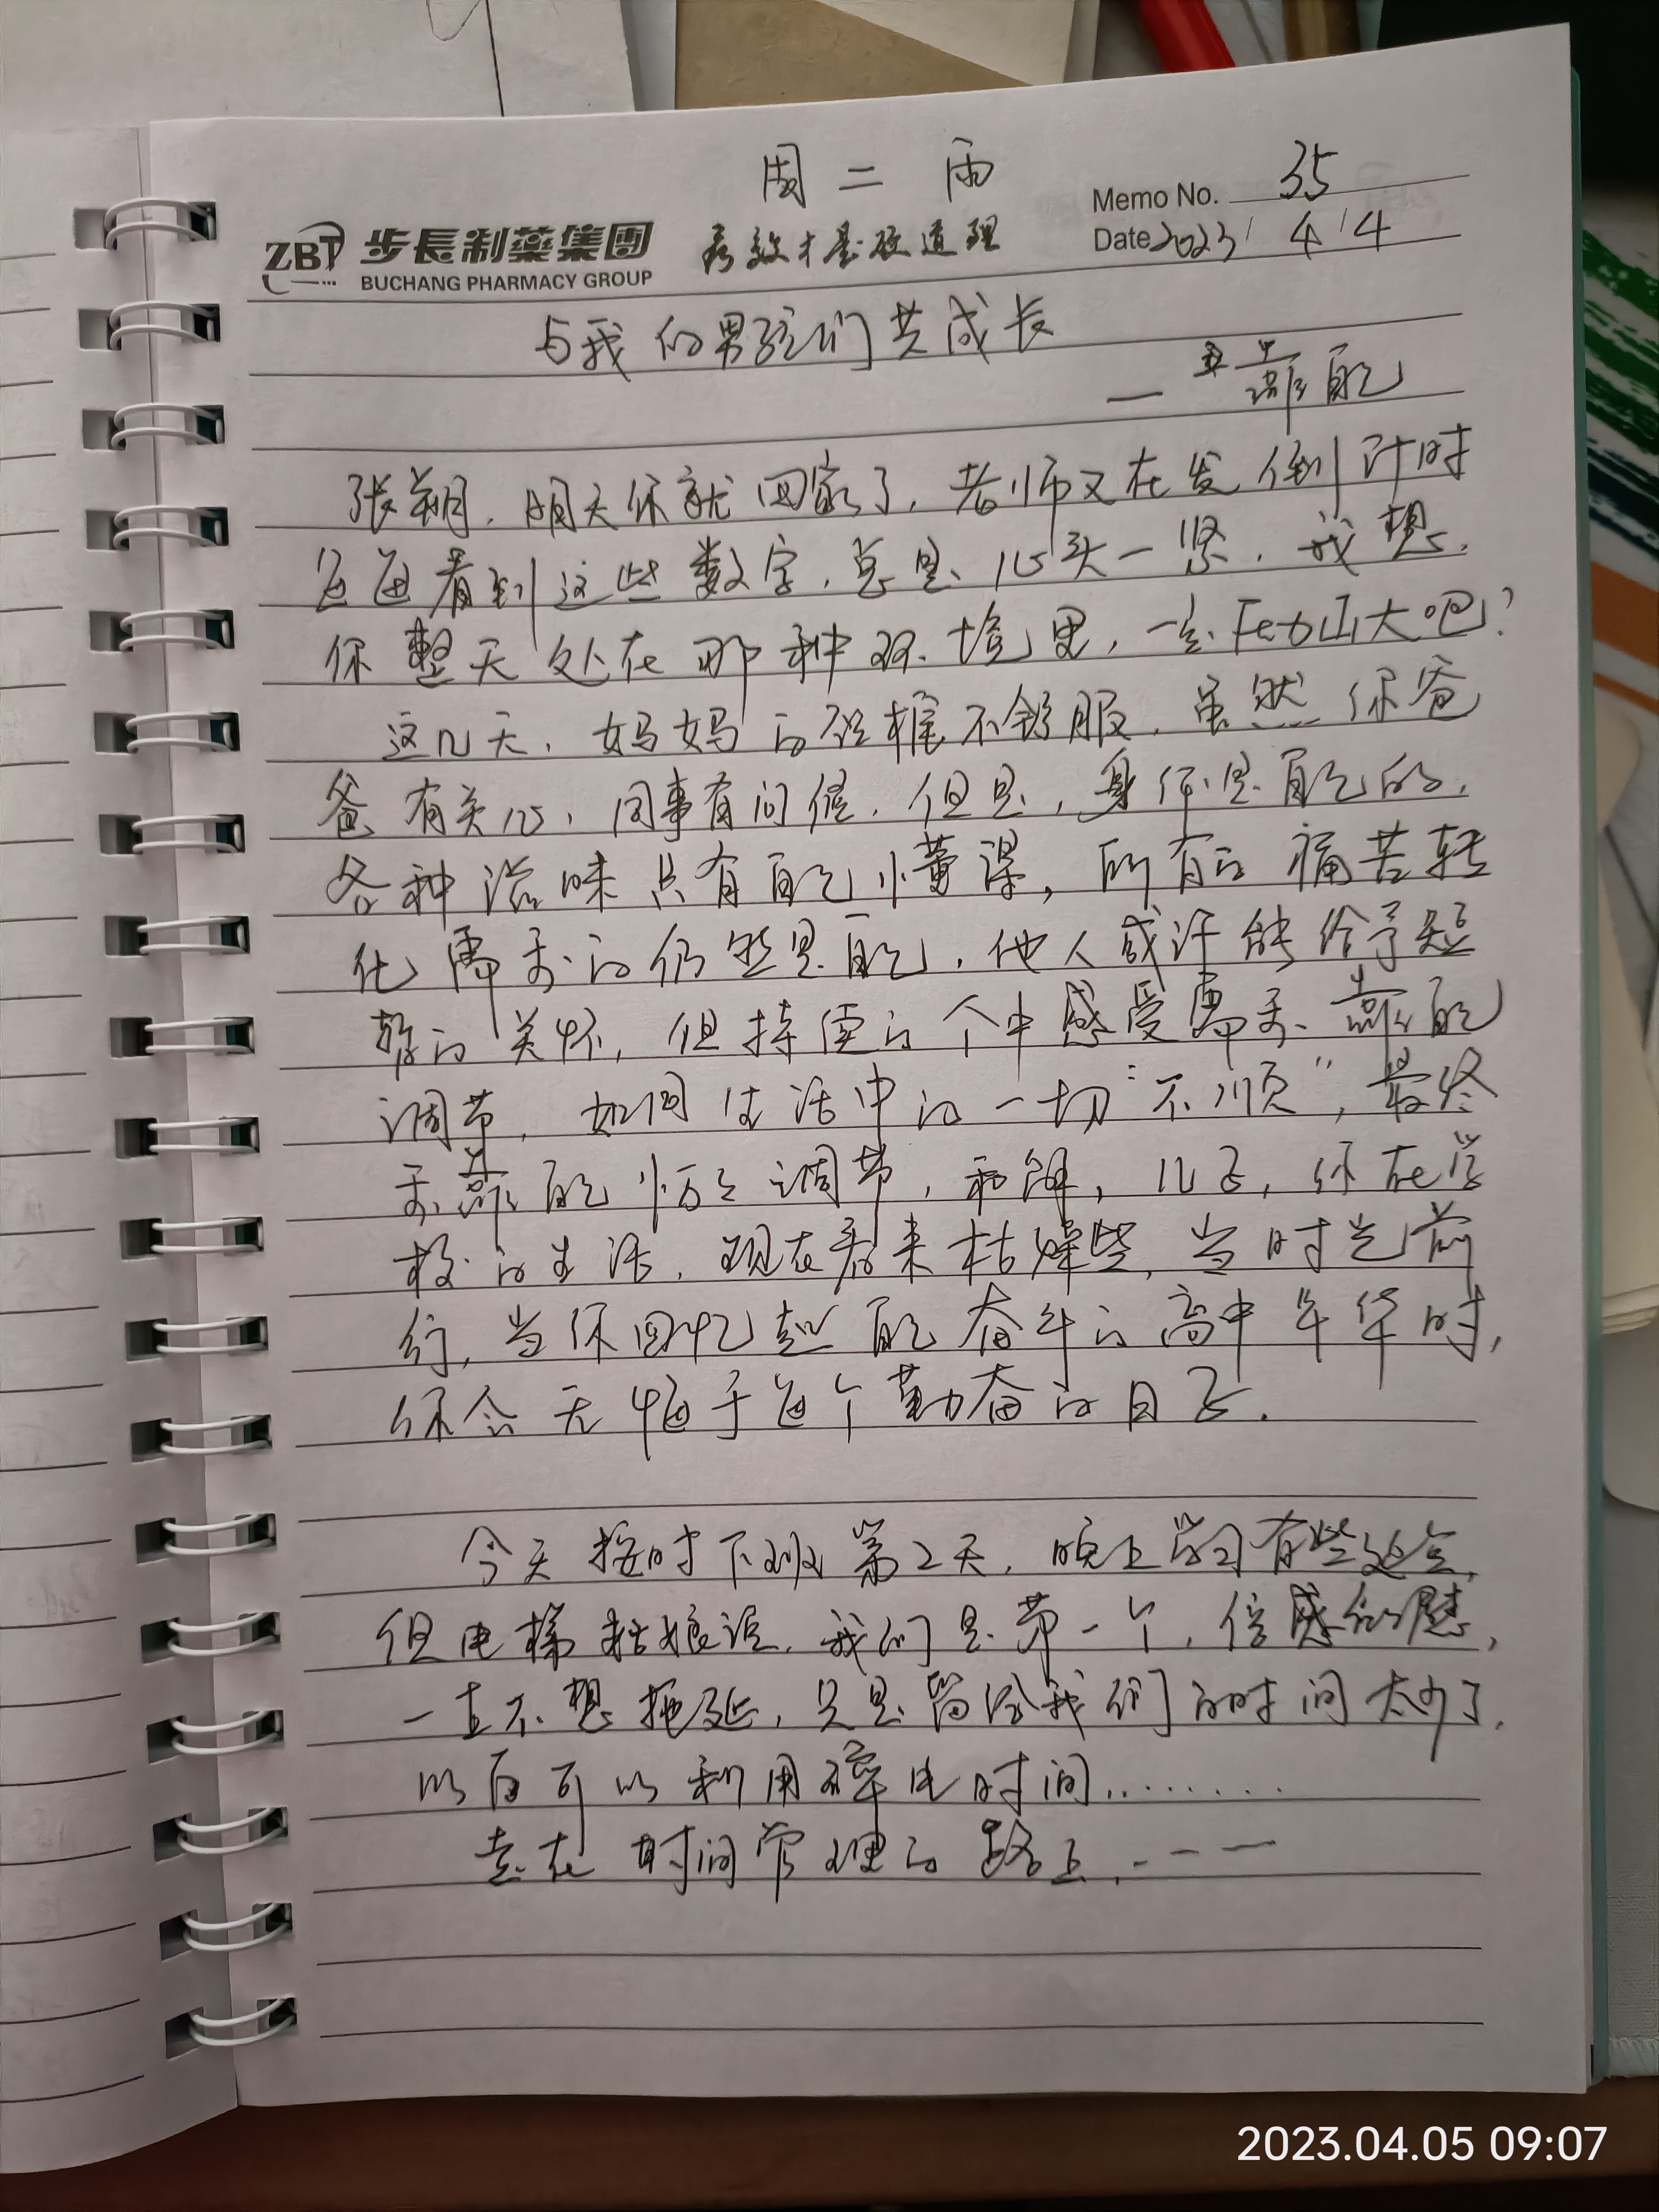 周二 雨
Memo No. 35
ZBT 步長制藥集團 疗效才是硬道理
Date 2023/ 4/4
BUCHANG PHARMACY GROUP
与我的男孩们共成长
— 靠自己
张朔，明天你就回家了，老师又在发倒计时
每每看到这些数字，总是心头一紧，我想，
你整天处在那种环境里，一定压力山大吧？
这几天，妈妈的颈椎不舒服，虽然你爸
爸有关心，同事有问候，但是，身体是自己的，
各种滋味只有自己懂得，所有的痛苦转
化需要的仍然是自己，他人或许能给予短
暂的关怀，但持续的个中感受需要靠自己
调节，如同生活中的一切“不顺”，最终
要靠自己悄悄调节，和解，儿子，你在学
校的生活，现在看来枯燥些，当时光前
行，当你回忆起自己奋斗的高中年华时，
你会无悔于每个勤奋的日子．
今天按时下班第2天，晚上学习有些延点，
但电梯姑娘说，我们是第一个，倍感欣慰，
一直不想拖延，只是留给我们的时间太少了，
以后可以利用停电时间………
走在时间管理的路上，- — —
2023.04.05 09:07